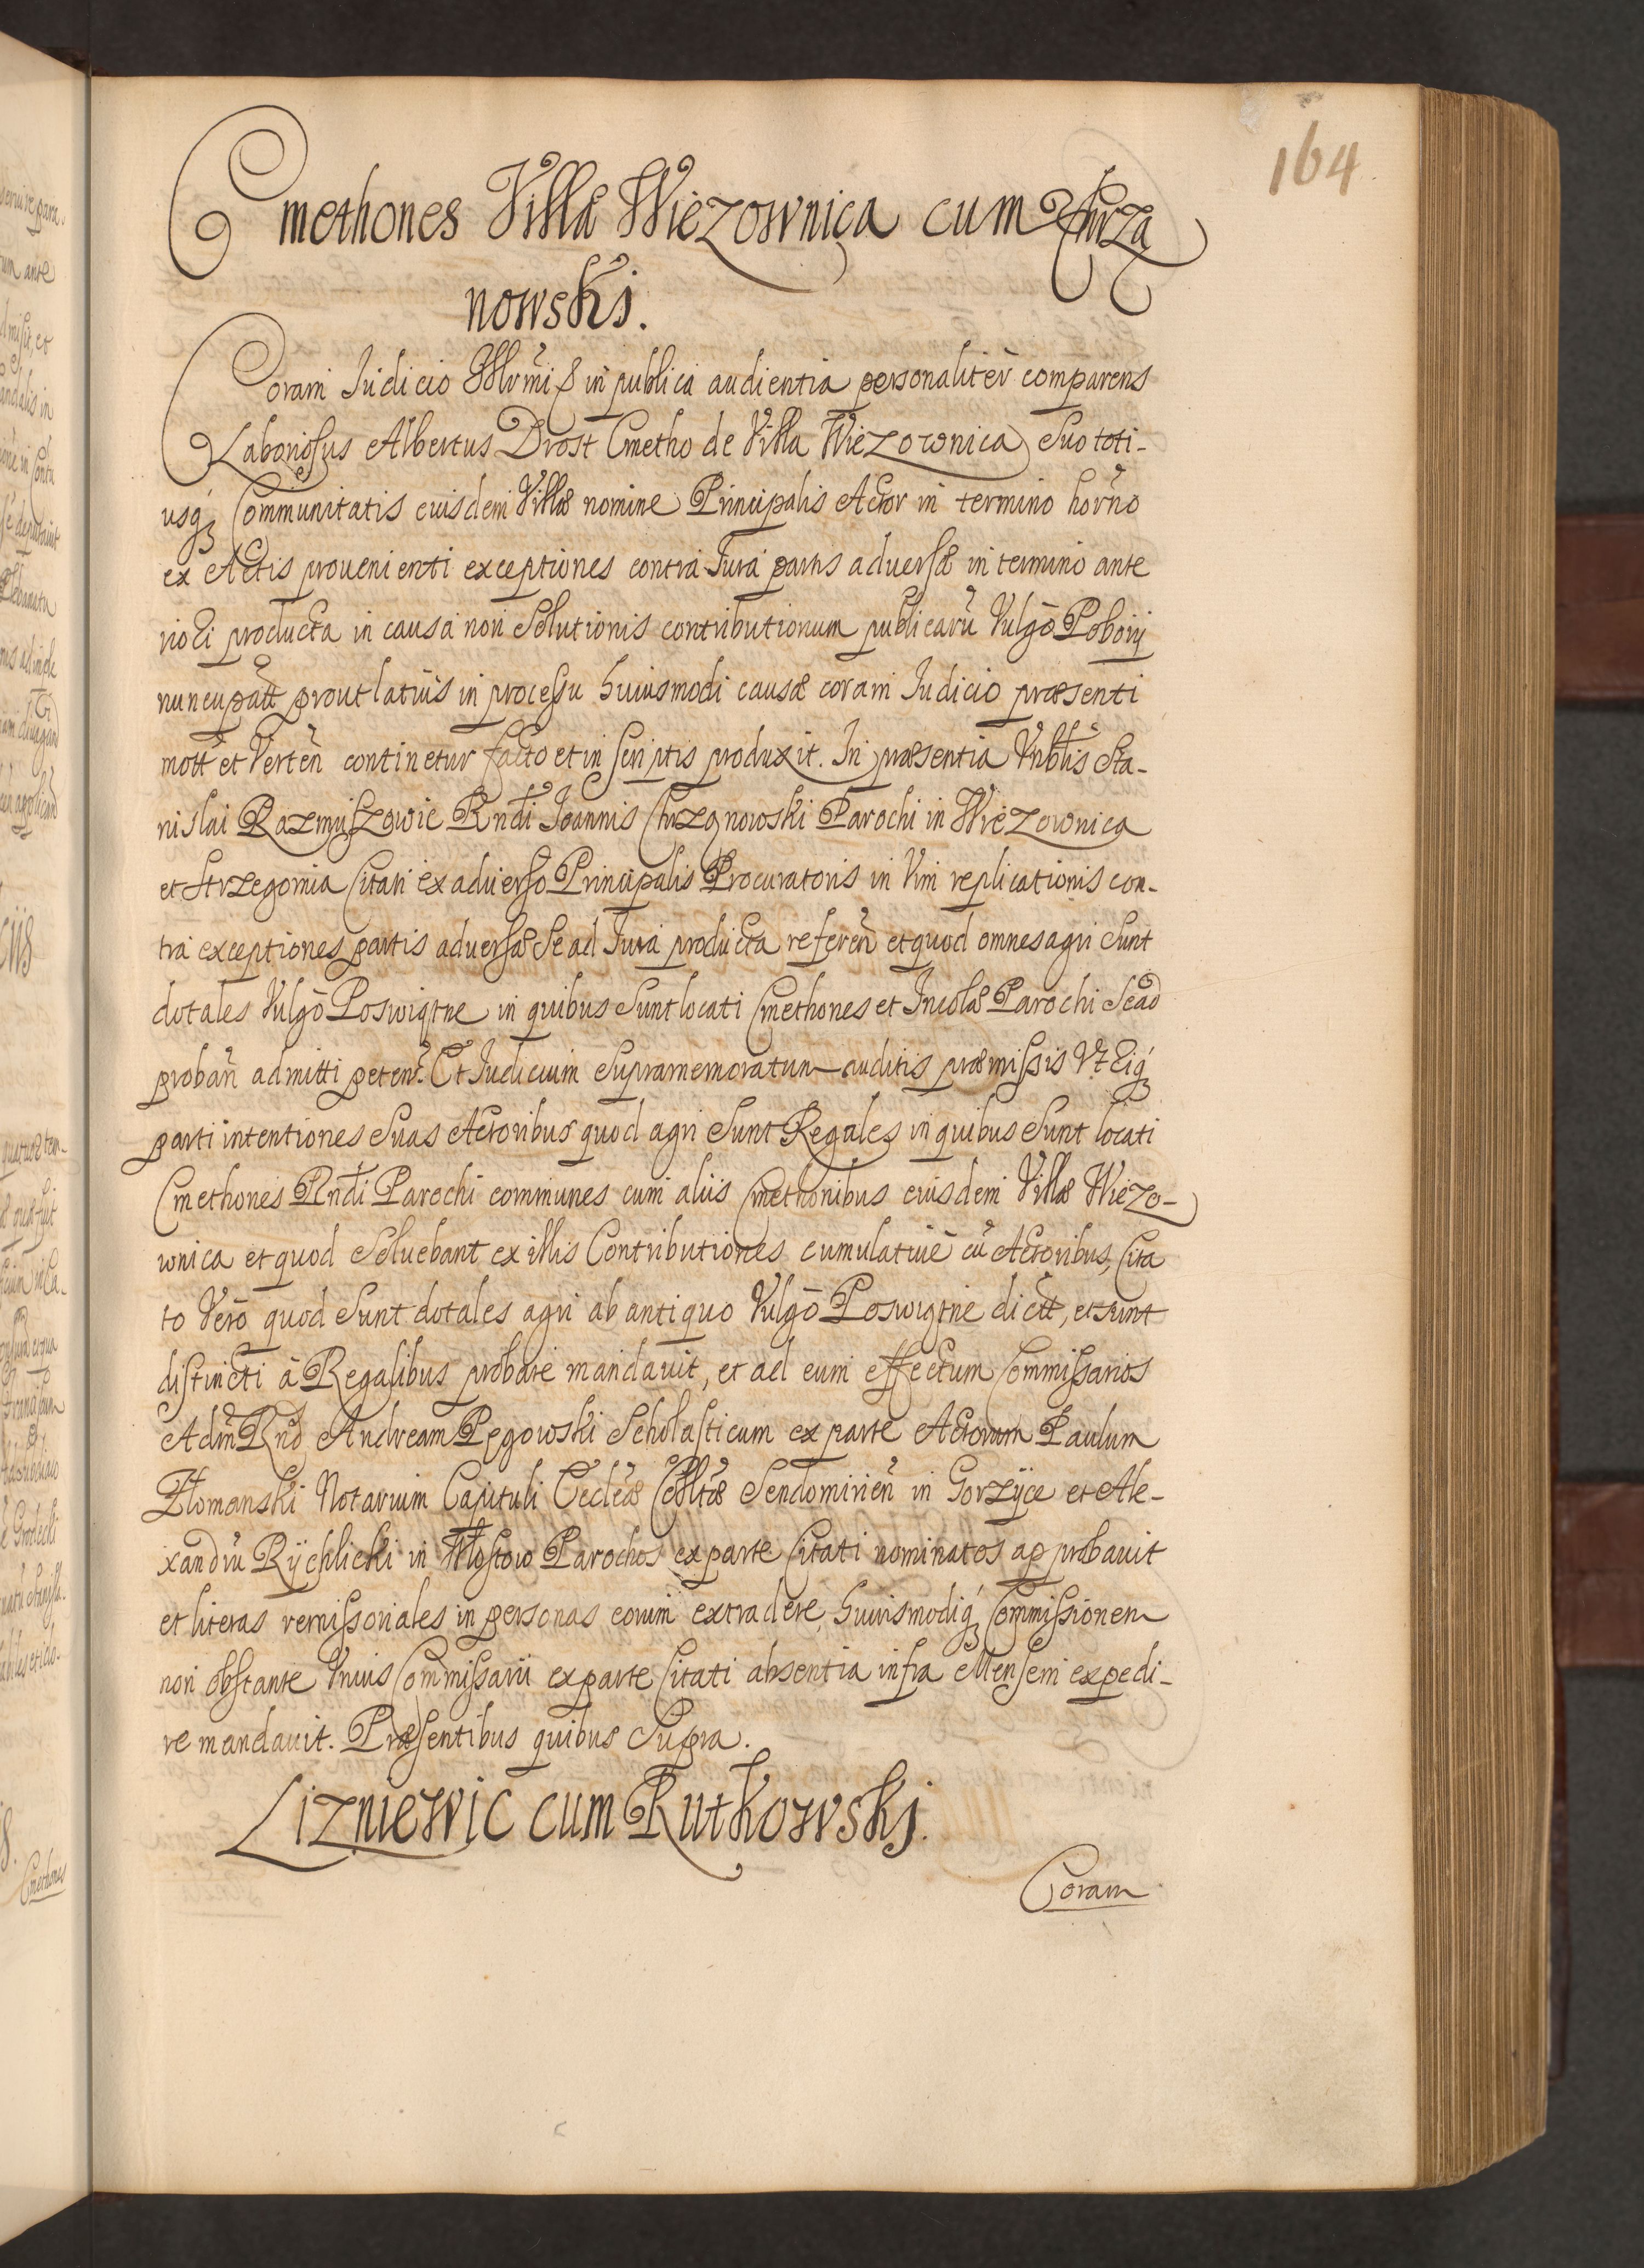 164
Cmethones Villæ Wiezownica cum Chrzą
nowski.
Coram Iudicio in publica audientia personalitèr comparens
Laboriosus Albertus Drost Cmetho de Villa Wiezownica Suo toti-
usq́ Communitatis eiusdem Villæ nomine Principalis Actor in termino horño
ex Actis prouenienti exceptiones contra Iura partis aduersæ in termino ante
riori producta in causa non Solutionis contributionum publicarū Vulgò Pobory
nuncupatt prout latiùs in processu huiusmodi causæ coram Iudicio præsenti
mott et Verteñ continetur facto et in scriptis produxit. In præsentia Vnblis Sta-
nislai Razmuszowic Rndi Ioannis Chrzanowski Parochi in Wiezownica
et Strzegomia Citati ex aduerso Principalis Procuratoris in Vim replicationis con-
tra exceptiones partis aduersæ Se ad Iura producta refereñ et quod omnes agri Sunt
dotales Vulgò Poswiątne in quibus Sunt locati Cmethones et Incolæ Parochi Se ad
probañ admitti peteñ. Et Iudicium Supramemoratum auditis præmissis Vtriq́
parti intentiones Suas Actoribus quod agri Sunt Regales in quibus Sunt locati
Cmethones Rndi Parochi communes cum aliis Cmethonibus eiusdem Villæ Wiezo-
wnica et quod Soluebant ex illis Contributiones cumulatiuè cū Actoribus, Cita
to Verò quod Sunt dotales agri ab antiquo Vulgò Poswiątne dictt, et sunt
distincti à Regalibus probare mandauit, et ad eum effectum Commissarios
Adm̃ Rñd Andream Pęgowski Scholasticum ex parte Actorum Paulum
Złomanski Notarium Capituli Eccleæ Colltæ Sendomirieñ in Gorzÿce et Ale-
xandrū Rÿchlicki in Włostow Parochos ex parte Citati nominatos approbauit
et literas remissoriales in personas eorum extradere, huiusmodiq́ Commissionem
non obstante Vnius Commissarii ex parte Citati absentia infra Mensem expedi-
re mandauit. Præsentibus quibus Supra.
Lizniewic cum Rutkowski.
Coram